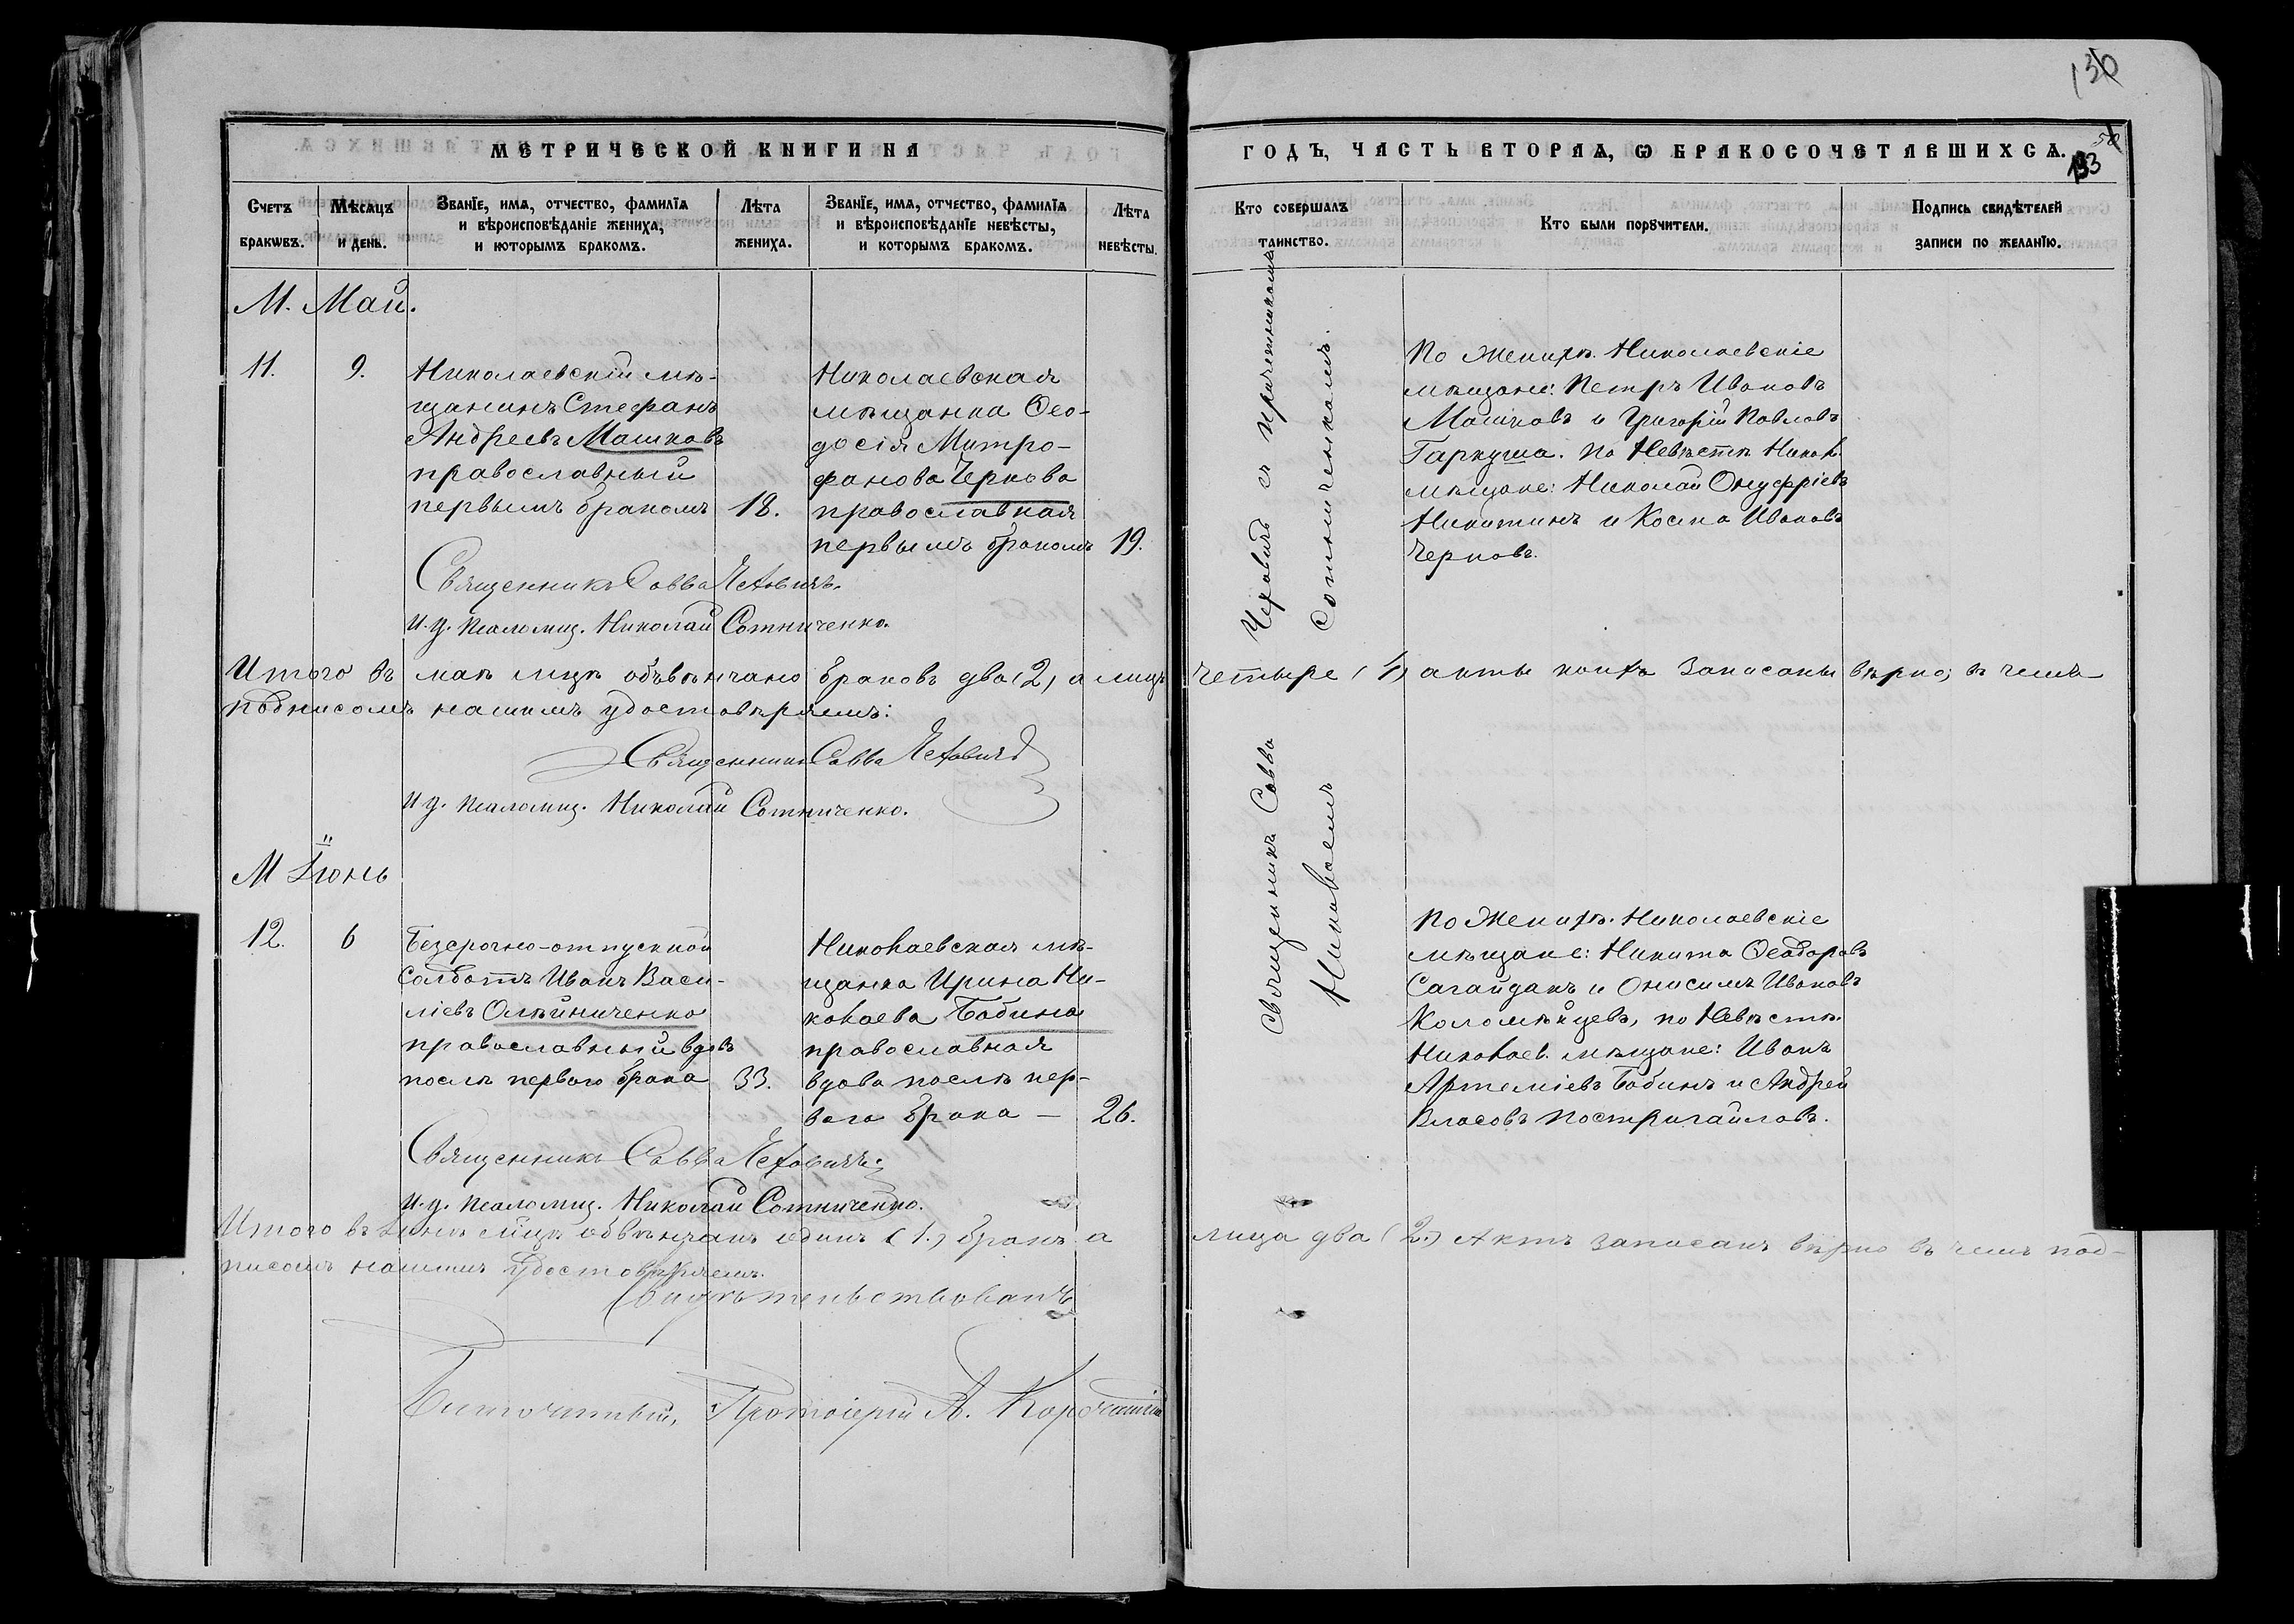 130
МЕТРИЧЕСКОЙ КНИГИ НА
ГОДЪ, ЧАСТЬ ВТОРАѦ, Ѡ БРАКОСОЧЕТАВШИХСѦ.
133
Счетъ браковъ.
Мѣсѧцъ и день.
Званїе, имѧ, отчество, фамилїѧ
и вѣроисповѣданїе жениха,
и которымъ бракомъ.
Лѣта жениха.
Званїе, имѧ, отчество, фамилїѧ
и вѣроисповѣданїе невѣсты,
и которымъ бракомъ.
Лѣта невѣсты.
Кто совершалъ таинство.
Кто были порꙋчители.
Подпись свидѣтелей
записи по желанїю.
М. Май.
11.
9.
Николаевскій мѣ-
щанинъ Стефанъ
Андреевъ Машковъ
православный
первымъ бракомъ
18.
Николаевская
мѣщанка Ѳео-
досія Митро-
фанова Чернова
православная
первымъ бракомъ
19.
Священникъ Савва
Чеховичъ съ причетникомъ
Николаемъ
Сотниченкомъ.
По Женихѣ. Николаевскіе
мѣщане: Петръ Ивановъ
Машковъ и Григорій Павловъ
Гаркуша. По Невѣстѣ Никол.
мѣщане: Николай Онуфріевъ
Никитинъ и Косма Ивановъ
Черновъ.
Священникъ Савва Чеховичъ.
И.д. псаломщ. Николай Сотниченко.
Итого въ маѣ мцѣ объвѣнчано браковъ два (2) а лицъ четыре (4) акты коихъ записаны вѣрно; въ чемъ
подписомъ нашимъ удостовѣряемъ:
Священникъ Савва Чеховичъ
И.д. псаломщ. Николай Сотниченко.
М Іюнь
12.
6
Безсрочно-отпускной
солдатъ Иванъ Васи-
ліевъ Олѣйниченко
православный вдовъ
послѣ перваго брака
33.
Николаевская мѣ-
щанка Ирина Ни-
колаева Бабина
православная
вдова послѣ пер-
ваго брака —
26.
По Женихѣ. Николаевскіе
мѣщане: Никита Ѳеодоровъ
Сагайдакъ и Онисимъ Ивановъ
Коломѣйцевъ, по Невѣстѣ.
Николаев. мѣщане: Иванъ
Артеміевъ Бабинъ и Андрей
Власовъ Постригайловъ.
Священникъ Савва Чеховичъ.
И.д. псаломщ. Николай Сотниченко.
Итого въ Іюнѣ мцѣ обвѣнчанъ одинъ (1.) бракъ а лица два (2.) Актъ записанъ вѣрно въ чемъ под-
писомъ нашимъ удостовѣряемъ.
Свидѣтельствовалъ
Благочинный, Протоіерей А.